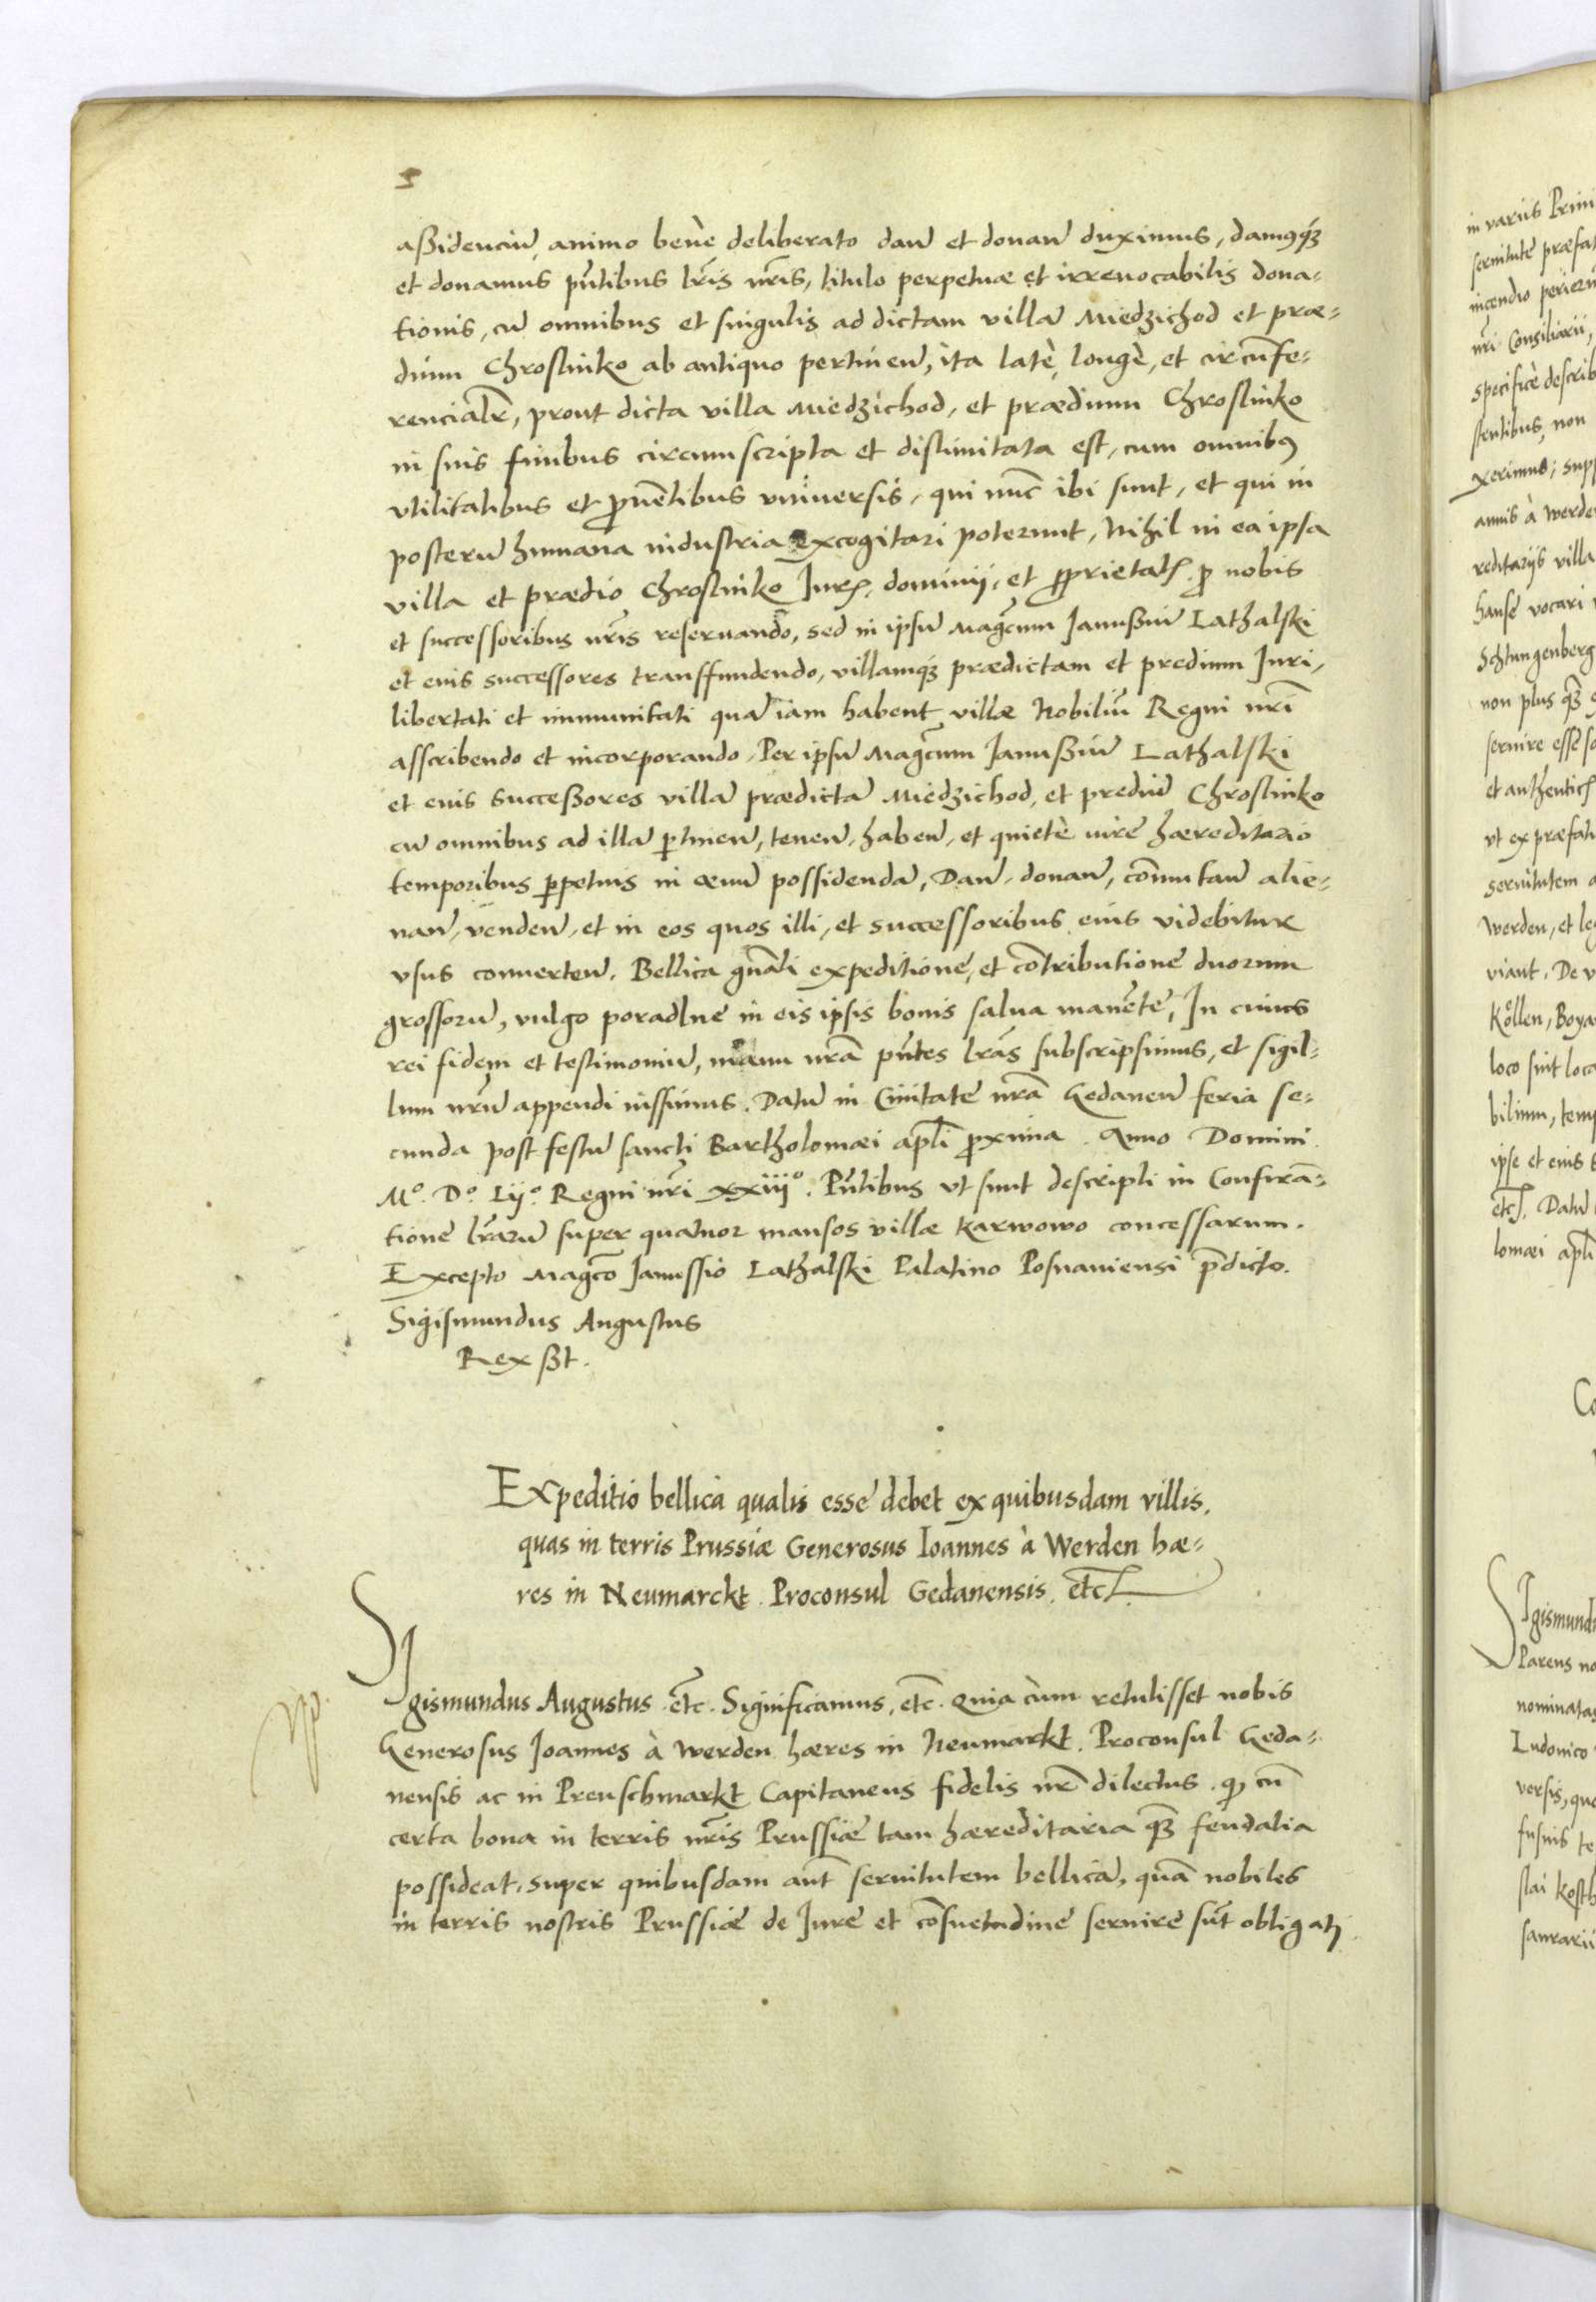 aßidenciū, animo benè deliberato danđ et donanđ duximus, damusq́ꝫ
et donamus pn̄tibus lr̄is nr̄is, titulo perpetuæ et irreuocabilis dona-
tionis, cū omnibus et singulis ad dictam villā Miedzichod et præ-
dium Chrostniko ab antiquo pertinen̄, ita latè, longè, et circūfe-
rencialr̄, prout dicta villa Miedzichod, et prædium Chrostniko
in suis finibus circumscripta et distinitata est, cum omnibꝰ
vtilitatibus et ꝓuētibus vniuersis, qui nūc ibi sunt, et qui in
posterū humana industria excogitari poterunt, Nihil in ea ipsa
villa et prædio Chrostniko Iurꝭ, dominij, et ꝓprietatꝭ ꝓ nobis
et successoribus nr̄is reseruando, sed in ipsū Magc̄um Ianußiū Lathalski
et eius successores transffundendo, villamq́ꝫ prædictam et predium Iuri,
libertati et immunitati quā iam habent villæ Nobiliū Regni nr̄i
asscribendo et incorporando. Per ipsū Magc̄um Ianußiū Lathalski
et eius successores villā prædictā Miedzichod, et prediū Chrostniko
cū omnibus ad illā ꝑtinen̄, tenen̄, haben̄, et quietè iure hæreditario
temporibus ꝑpetuis in æuū possidendā, Dan̄, donan̄, cōmutan̄ alie-
nan̄, venden̄, et in eos quos illi, et successoribus eius videbitur
vsus conuerten̄. Bellica gn̄ali expeditione, et cōtributione duorum
grossorū, vulgo poradlne in eis ipsis bonis salua manēte, In cuius
rei fidem et testimoniū, manu nr̄a pn̄tes lr̄as subscripsimus, et sigil-
lum nr̄ū appendi iussimus. Datū in Ciuitate nr̄a Gedanen̄ feria se-
cunda post festū sancti Bartholomæi apl̄i ꝓxima. Anno Domini
Mº. Dº. Lijº. Regni nr̄i xxiijº. Pn̄tibus vt sunt descripti in Confirā-
tione lr̄arū super quatuor mansos villæ Karwowo concessarum.
Excepto Magc̄o Ianussio Lathalski Palatino Posnaniensi p̄dicto.
Sigismundus Augustus
Rex ßt.
Expeditio bellica qualis esse debet ex quibusdam villis,
quas in terris Prussiæ Generosus Ioannes à Werden hæ-
res in Neumarckt. Proconsul Gedanensis. etc̄.
SIgismundus Augustus etc̄. Significamus, etc̄. Quia cùm retulisset nobis
Generosus Ioannes à Werden hæres in Neumarkt. Proconsul Geda-
nensis ac in Preuschmarkt Capitaneus fidelis nr̄ dilectus. ꝙ cū
certa bona in terris nr̄is Prussiæ tam hæreditaria qꝫ̄ feudalia
possideat, super quibusdam aut̄ seruitutem bellicā, quā nobiles
in terris nostris Prussiæ de Iure et cōsuetudine seruire sūt obligatj
in variis
seruitute præfat
incendio perierū
nr̄i Consiliarii,
specificè describ
stentibus, non
xerimus; supp
annis à Werde
reditarijs villa
hanse vocari
Schtungenberg
non plus qꝫ̄
seruire esse
et authenticꝭ
vt ex præfat
seruitutem a
Werden, et le
viant. De v
Köllen, Boya
loco sint loca
bilium, temp
ipse et eius
etc̄. Datū
lomæi apl̄i
Co
SIgismund
Parens no
nominatas
Ludouico
versis, qu
fusius te
stai Kosth
saurarii